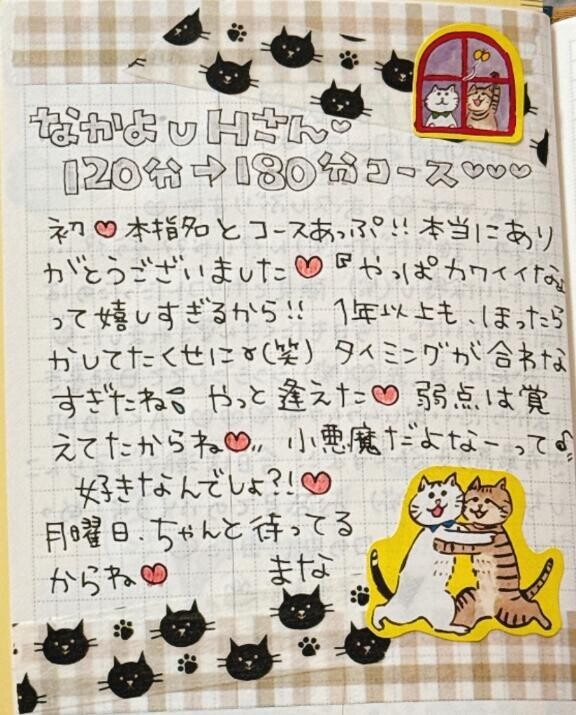 なかよしHさん♡
120分→180分コース♡♡♡
初♥本指名とコースあっぷ!!本当にあり
がとうございました♥『やっぱカワイイな』
って嬉しすぎるから!! 1年以上も、ほったら
かしてたくせにɤ(笑) タイミングが合わな
すぎたね。やっと逢えた♥弱点は覚
えてたからね♥〃 小悪魔だよなーって♪
好きなんでしょ?!♥
月曜日、ちゃんと待ってる
からね♥ まな